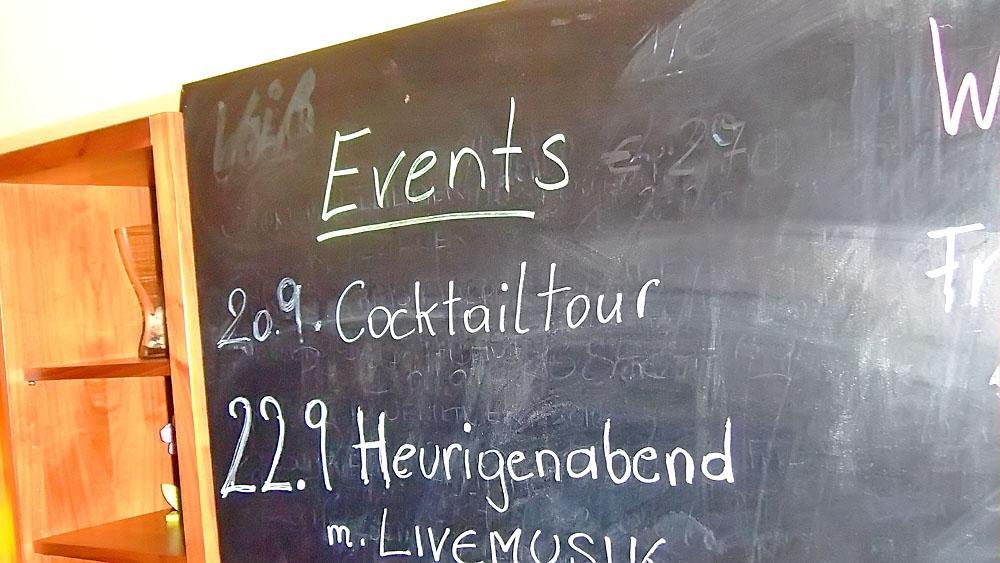 Events
20.9. Cocktailtour
22.9 Heurigenabend
m. LIVEMUSIK
W
Fr